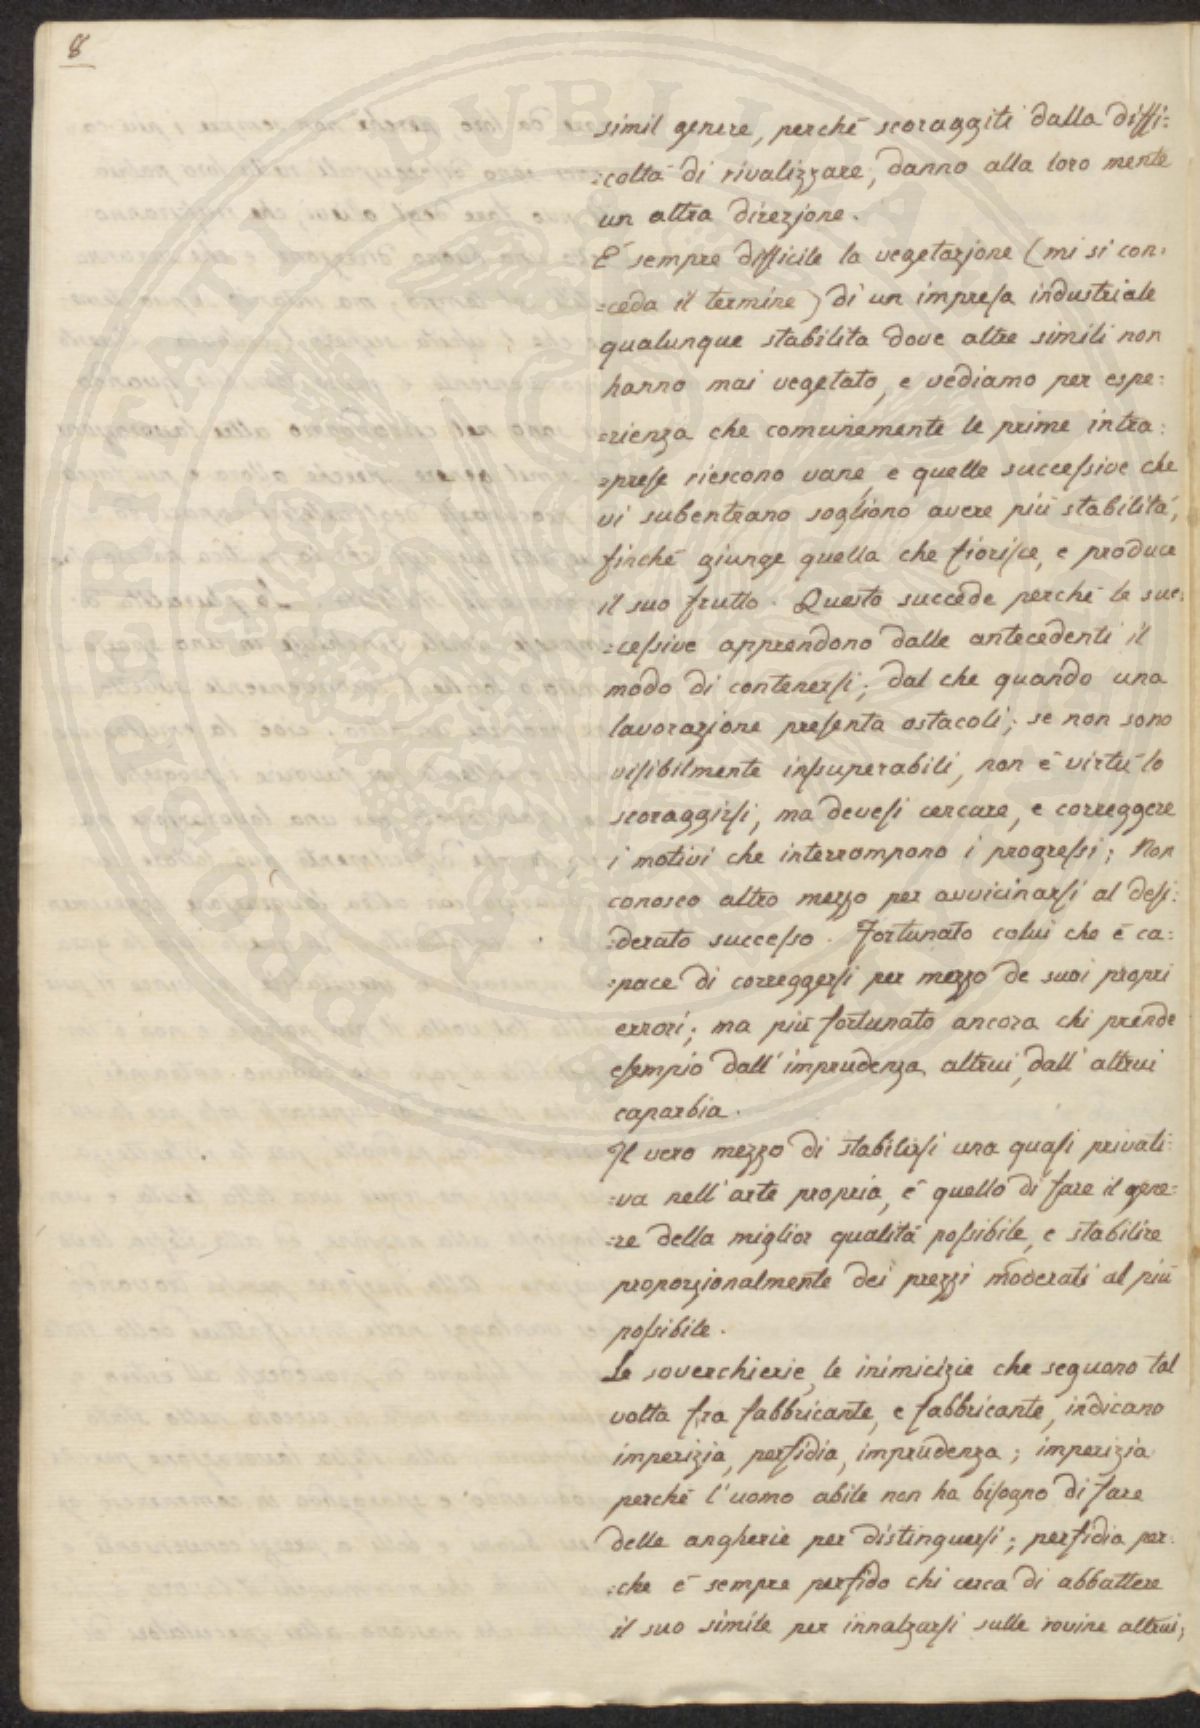 8
simil genere, perché scoraggiti dalla diffi:
=coltà di rivalizzare, danno alla loro mente
un altra direzione.
É sempre difficile la vegetazione (mi si con:
=ceda il termine) di un impresa industriale
qualunque stabilita dove altre simili non
hanno mai vegetato, e vediamo per espe:
=rienza che comunemente le prime intra:
=prese riescono vane, e quelle successive che
vi subentrano sogliono avere più stabilità,
finché giunge quella che fiorisce, e produce
il suo frutto. Questo succede perché le suc:
=cessive apprendono dalle antecedenti il
modo di contenersi; dal che quando una
lavorazione presenta ostacoli; se non sono
visibilmente insuperabili, non é virtù lo
scoraggirsi, ma devesi cercare, e correggere
i motivi che interrompono i progressi; Non
conosco altro mezzo per avvicinarsi al desi:
=derato successo. Fortunato colui che é ca:
=pace di correggersi per mezzo de suoi propri
errori; ma più fortunato ancora chi prende
esempio dall'imprudenza altrui, dall'altrui
caparbia.
Il vero mezzo di stabilirsi una quasi privati:
=va nell'arte propria, é quello di fare il gene=
=re della miglior qualità possibile, e stabilire
proporzionalmente dei prezzi moderati al più
possibile.
Le soverchierie, le inimicizie che seguono tal
volta fra fabbricante, e fabbricante, indicano
imperizia, perfidia, imprudenza; imperizia
perché l'uomo abile non ha bisogno di fare
delle angherie per distinguersi; perfidia per:
=che é sempre perfido chi cerca di abbattere
il suo simile per innalzarsi sulle rovine altrui;